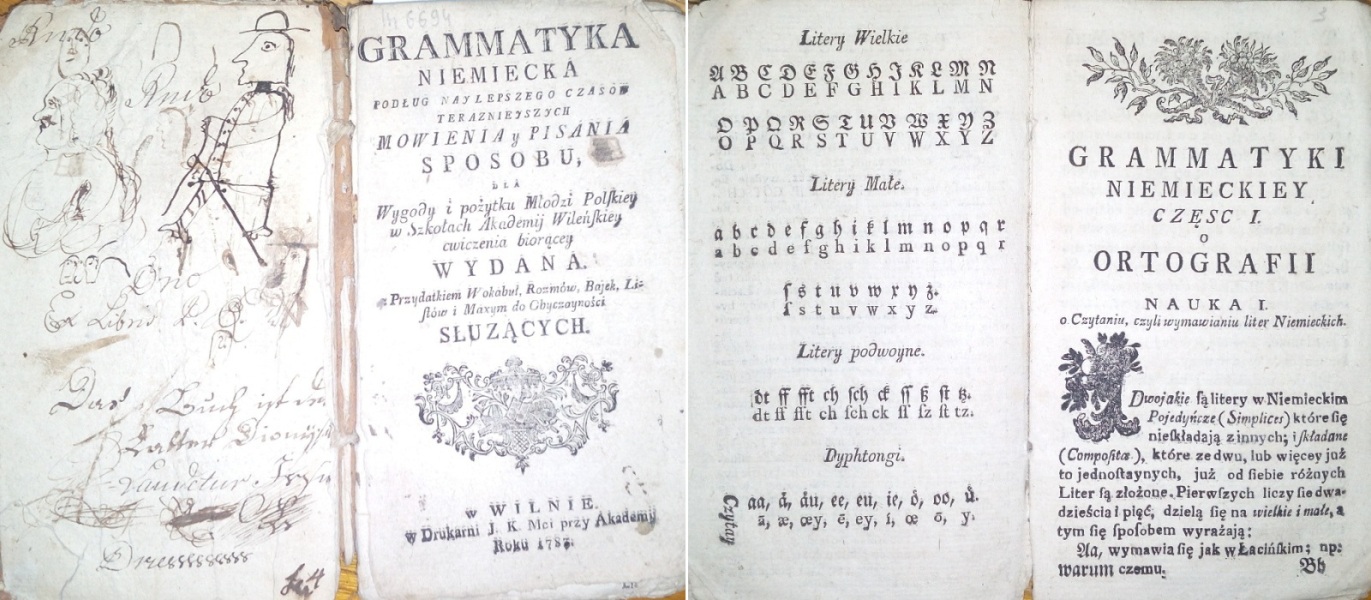 Das Buch ist
Nr 6694
GRAMMATYKA
NIEMIECKA
PODŁUG NAYLEPSZEGO CZASÓW
TERAZNIEYSZYCH
MOWIENIA y PISANIA
SPOSOBU,
DLA
Wygody i pożytku Młodzi Polskiey
w Szkołach Akademij Wileńskiey
cwiczenia biorącey
WYDANA.
z Przydatkiem Wokabuł, Rozmów, Bajek, Li-
stów i Maxym do Obyczayności
SŁUZĄCYCH.
w WILNIE.
w Drukarni J. K. Mci przy Akademij
Roku 1787.
Litery Wielkie
A B C D E F G H J K L M N
A B C D E F G H I K L M N
O P Q R S T U V W X Y Z
O P Q R S T U V W X Y Z
Litery Małe.
a b c d e f g h i k l m n o p q r
a b c d e f g h i k l m n o p q r
ſ s t u v w x y z.
ſ s t u v w x y z.
Litery podwoyne.
dt ff fft ch ſch ck ſſ ß ſt tz.
dt ff fft ch ſch ck ſſ ſz ſt tz.
Dyphtongi.
aa, å, åu, ee, eu, ie, ö, oo, ů.
ā, æ, œy, ē, ey, i, œ ō, y.
Czytay
3
GRAMMATYKI
NIEMIECKIEY
CZĘSC I.
O
ORTOGRAFII
NAUKA I.
o Czytaniu, czyli wymawianiu liter Niemieckich.
Dwojakie ſą litery w Niemieckim
Pojedyńcze (Simplices) które ſię
nieſkładają z innych; i ſkładane
(Compoſitæ), które ze dwu, lub więcey już
to jednoſtaynych, już od ſiebie różnych
Liter ſą złożone. Pierwſzych liczy ſie dwa-
dzieścia i pięć, dzielą ſię na wielkie i małe, a
tym ſię ſpoſobem wyrażają:
Aa, wymawia ſię jak w Łacińſkim; np:
warum czemu.
Bb